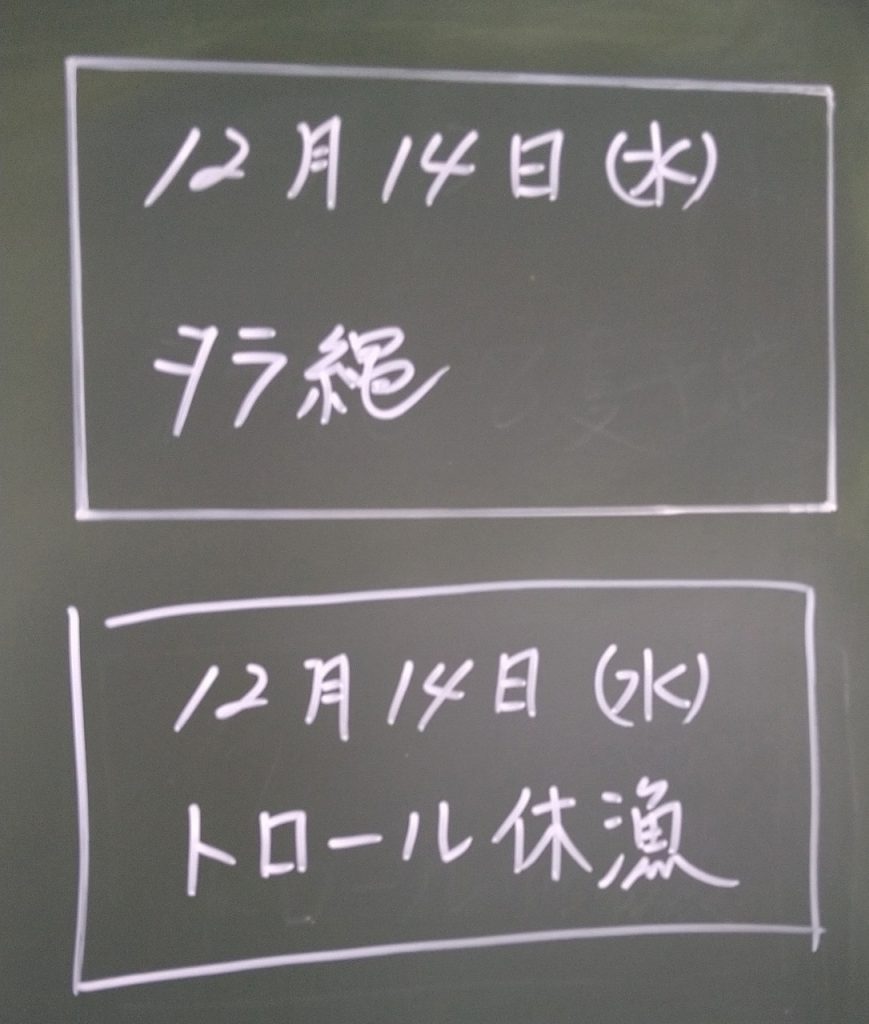 12月14日(水)
タラ縄
12月14日(水)
トロール休漁